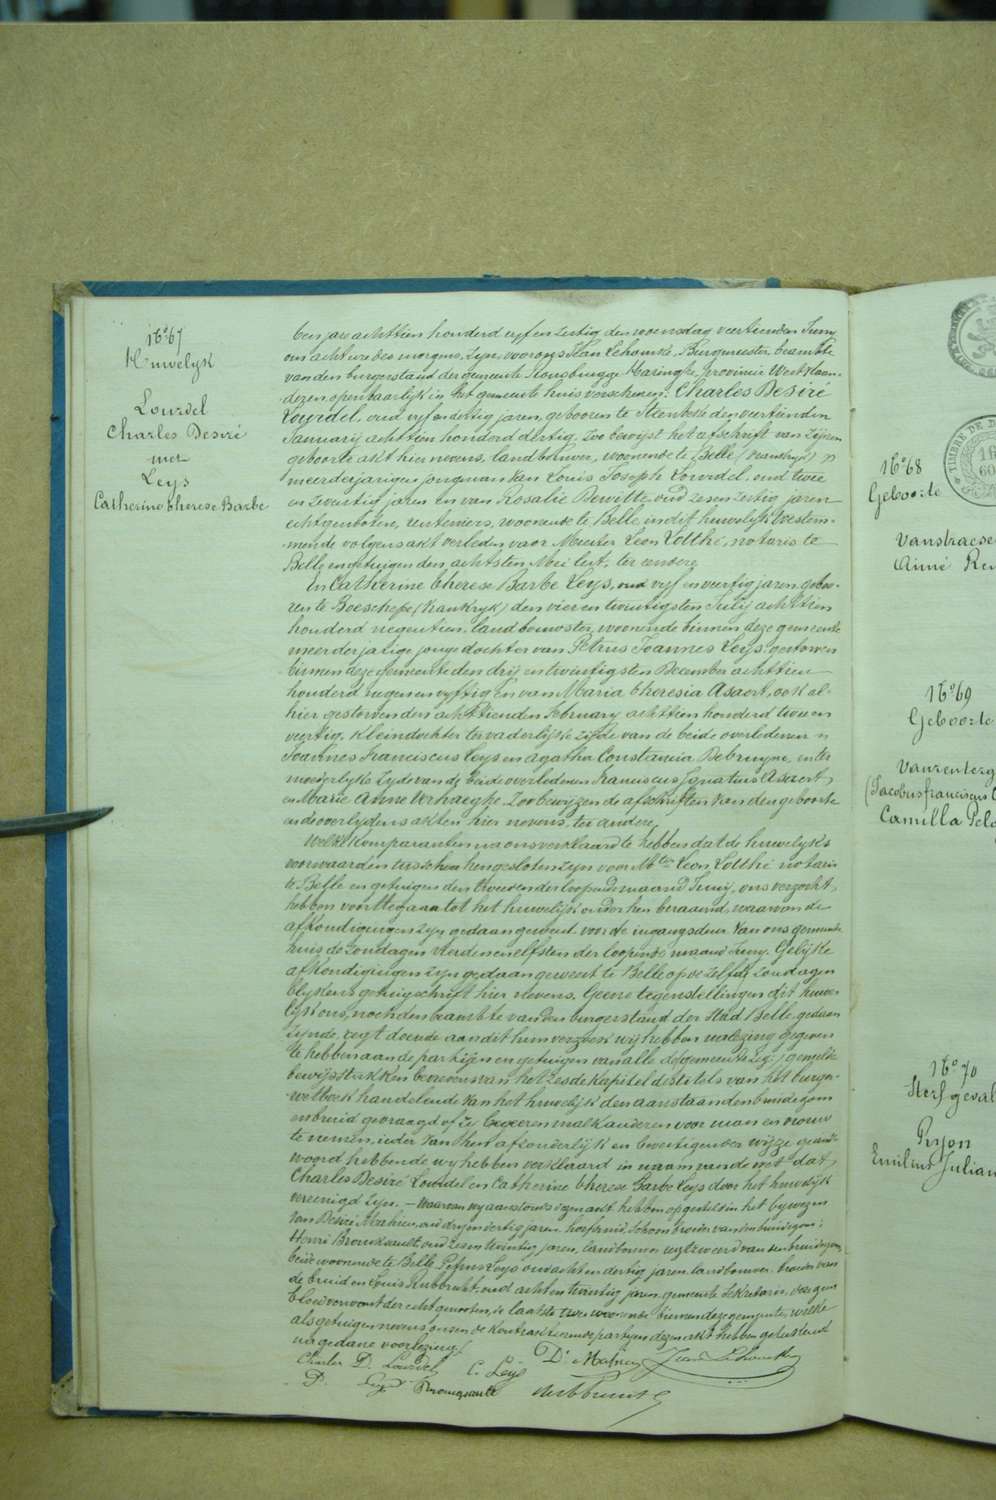 N° 67
Huwelyk
Lourdel
Charles Desiré
met
Leys
Catherine Therese Barbe
den jare achttien honderd vyf en zestig den woensdag veertienden Juny
om acht ure des morgens, zyn voor ons Jean Lehouck, Burgmeester beambte
van den burgerstand der gemeente Rousbrugge Haringhe, provincie West Vlaen-
deren, openbaarlyk in het gemeente huis verschenen: Charles Desiré
Lourdel, oud vyf en dertig jaren, geboren te Steenbeke den veertienden
January achttien honderd dertig, zoo bewyst het afschrift van zynen
geboorte akt hier nevens, landbouwer, woonende te Belle (Frankryk)
meerderjarigen jongman van Louis Joseph Lourdel, oud twee
en zeventig jaren en van Rosalie Dewitte oud zes en zestig jaren
echtgenooten, renteniers, woonende te Belle, in dit huwelyk toestem-
mende volgens akt verleden voor Meester Leon Lotthé, notaris te
Belle en getuigen den achtsten Mei lest, ter eendere
En Catherine Therese Barbe Leys, oud vyf en veertig jaren, gebo-
ren te Boeschepe (Frankryk) den vier en twintigsten July achttien
honderd negentien, landbouwster, woonende binnen deze gemeente
meerderjarige jonge dochter van Petrus Joannes Leys, gestorven
binnen deze gemeente den dry en twintigsten December achttien
honderd negen en vyftig en van Maria Theresia Asaert, ook al-
hier gestorven den achttienden February achttien honderd twee en
veertig, kleindochter ter vaderlyke zyde van de beide overledenen
Joannes Franciscus Leys en Agatha Constancia Debruyne en ter
moederlyke zyde van de beide overledenen Franciscus Ignatius Asaert
en Marie Anne Verhaeghe. Zoo bewyzen de afschriften van den geboorte
en de overlydens akten hier nevens, ter andere,
Welke komparanten na ons verklaard te hebben dat de huwelyks
voorwaarden tusschen hen gesloten zyn voor Mter Leon Lotthé notaris
te Belle en getuigen den tweeden der loopende maand Juny, ons verzocht
hebben voort te gaan tot het huwelyk onder hen beraamd, waarvan de
afkondigingen zyn gedaan geweest voor de ingangsdeur van ons gemeente
huis de zondagen vierden en elfsten der loopende maand Juny. Gelyke
afkondigingen zyn gedaan geweest te Belle op de zelfde zondagen
blykens getuigschrift hier nevens. Geene tegenstellingen dit huwe-
lyk ons, noch den beambte van den burgerstand der Stad Belle gedaan
zynde, regt doende aan dit hun verzoek wy hebben voorlezing gegeven
te hebben aan de partyen en getuigen van alle de gemeentezeg: gemelde
bewysstukken benevens van het zesde kapitel des titels van het burger-
wetboek handelende van het huwelyk den aanstaanden bruidegom
en bruid gevraagd of zy begeeren malkanderen voor man en vrouw
te nemen, ieder van hen afzonderlyk en bevestigender wyze geant-
woord hebbende wy hebben verklaard in naam van de wet dat
Charles Desiré Lourdel en Catherine Therese Barbe Leys door het huwelyk
vereenigd zyn. – Waarvan wy aanstonds dezen akt hebben opgesteld in het bywezen
van Desiré Mahieu, oud dry en dertig jaren, schoonbroeder van den bruidegom;
Henri Bronquault, oud zes en twintig jaren, landbouwer, van den bruidegom
beide woonende te Belle, Petrus Leys oud acht en dertig jaren, landbouwer, broeder van
de bruid en Louis Rubbrecht, oud acht en twintig jaren, gemeente Sekretaris, geen
bloedverwant der echtgenooten, de laatste twee woonende binnen deze gemeente, welke
als getuigen nevens ons en de kontrakteerende partyen dezen akt hebben geteekend
na gedane voorlezing.
Charles D. Lourdel C. Leys D. Mahieu Jean Lehouck
P. Leys Bronquault Rubbrecht
N° 68
Geboorte
N° 69
Geboorte
Camilla
N° 70
Sterfgeval
Ryon